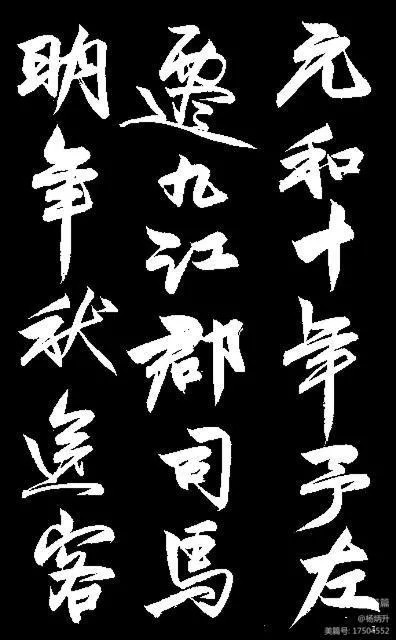 元和十年予左
遷九江郡司馬
明年秋送客
美篇
@杨炳升
美篇号: 17504552